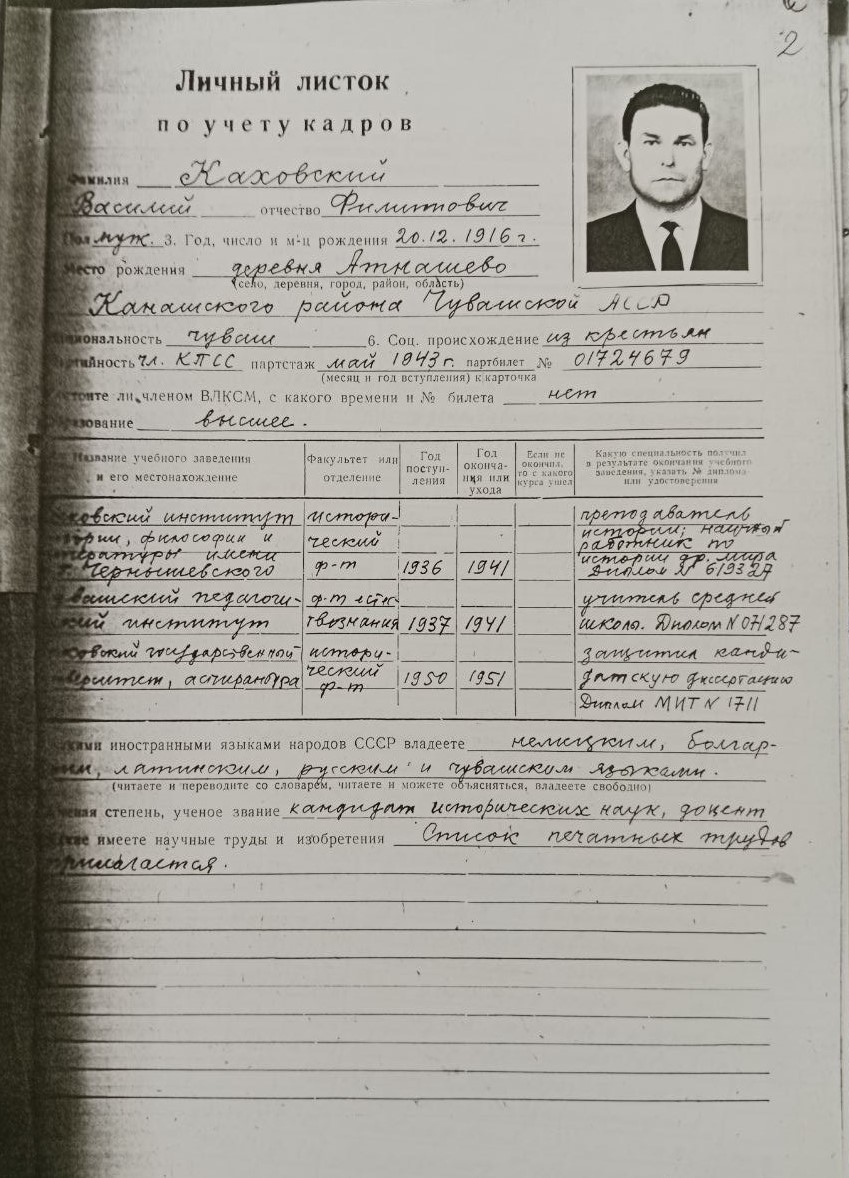 2
Личный листок
по учету кадров
Фамилия Каховский
Василий отчество Филиппович
Пол муж. 3. Год, число и м-ц рождения 20.12.1916 г.
Место рождения деревня Атнашево
(село, деревня, город, район, область)
Канашского района Чувашской АССР
иональность чуваш 6. Соц. происхождение из крестьян
тийность чл. КПСС партстаж май 1943 г. партбилет № 01724679
(месяц и год вступления) к карточка
стоите ли членом ВЛКСМ, с какого времени и № билета нет
разование высшее.
Название учебного заведения и его местонахождение
Факультет или отделение
Год поступ-ления
Год оконча-ния или ухода
Если не окончил, то с какого курса ушел
Какую специальность получил в результате окончания учебного заведения, указать № диплома или удостоверения
ковский институт истори- преподаватель
ории, философии и ческий истории; научный
тературы имени ф-т работник по
Чернышевского 1936 1941 истории др. мира
Диплом № 619327
вашский педагоги- ф-т есте- учитель средней
кий институт ствознания 1937 1941 школы. Диплом № 071287
ковский государственный истори- защитил канди-
верситет, аспирантура ческий ф-т 1950 1951 датскую диссертацию
Диплом МИТ № 1711
кими иностранными языками народов СССР владеете немецким, болгар-
им, латинским, русским и чувашским языками.
(читаете и переводите со словарем, читаете и можете объясняться, владеете свободно)
ная степень, ученое звание кандидат исторических наук, доцент
кие имеете научные труды и изобретения Список печатных трудов
прилагается.